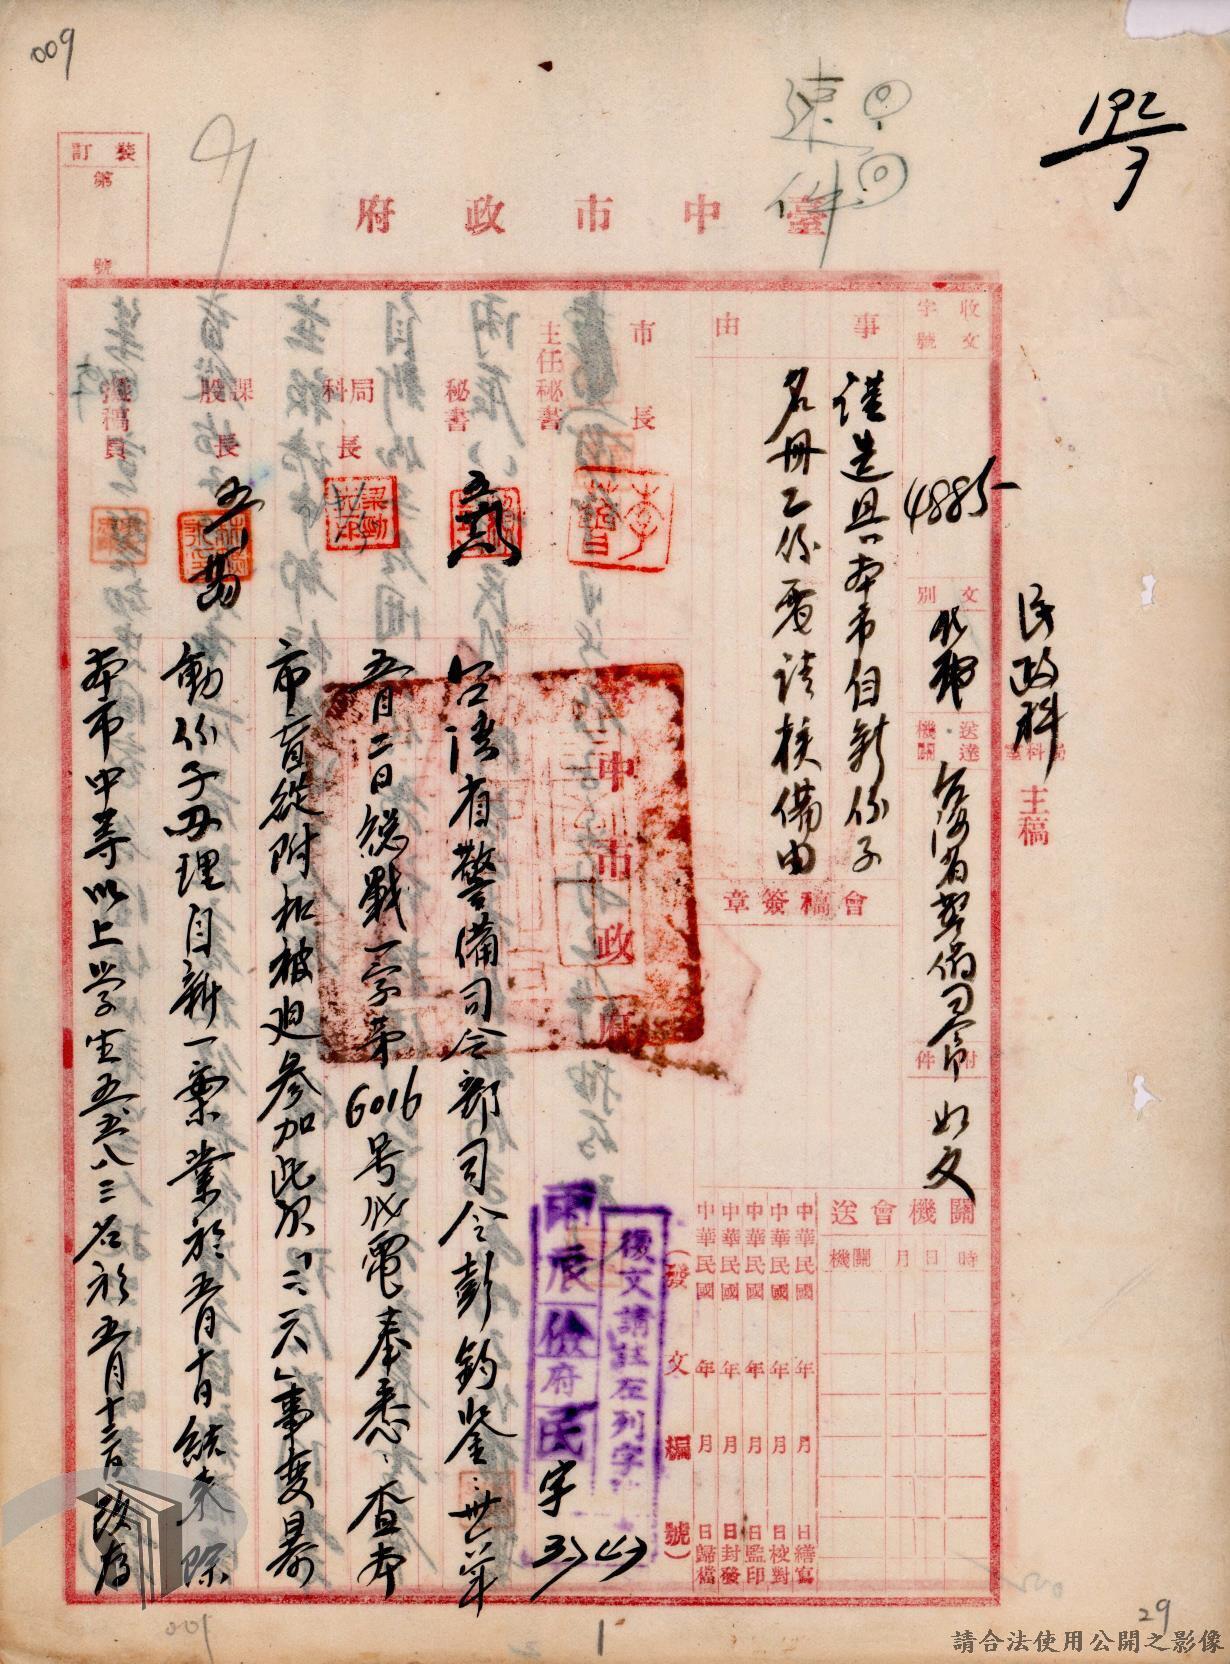 009
192
3
速件
裝訂
第
號
臺中市政府
民政科
主稿
收文
字號
4885
文別
代電
送達
機關
台灣省警備司令部
附件
如文
事由
謹造具本市自新份子
名冊乙份電請核備由
會稿簽章
關機會送
時
日
月
關機
中華民國 年 月 日繕寫
中華民國 年 月 日校對
中華民國 年 月 日監印
中華民國 年 月 日封發
中華民國 年 月 日歸檔
(發文編號)
市長
主任秘書
秘書
局科長
課股長
擬稿員
中市政府
復文請註左列字
府民字
台湾省警備司令部司令彭鈞鑒:卅六年
五月二日總戰一字第6016号代電奉悉、查本
市盲從附和被迫參加此次「二、二八」事變暴
動份子辦理自新一案業於五月十日結束除
本市中等以上学生五五八三名於五月十三日改存
001
1
29
請合法使用公開之影像